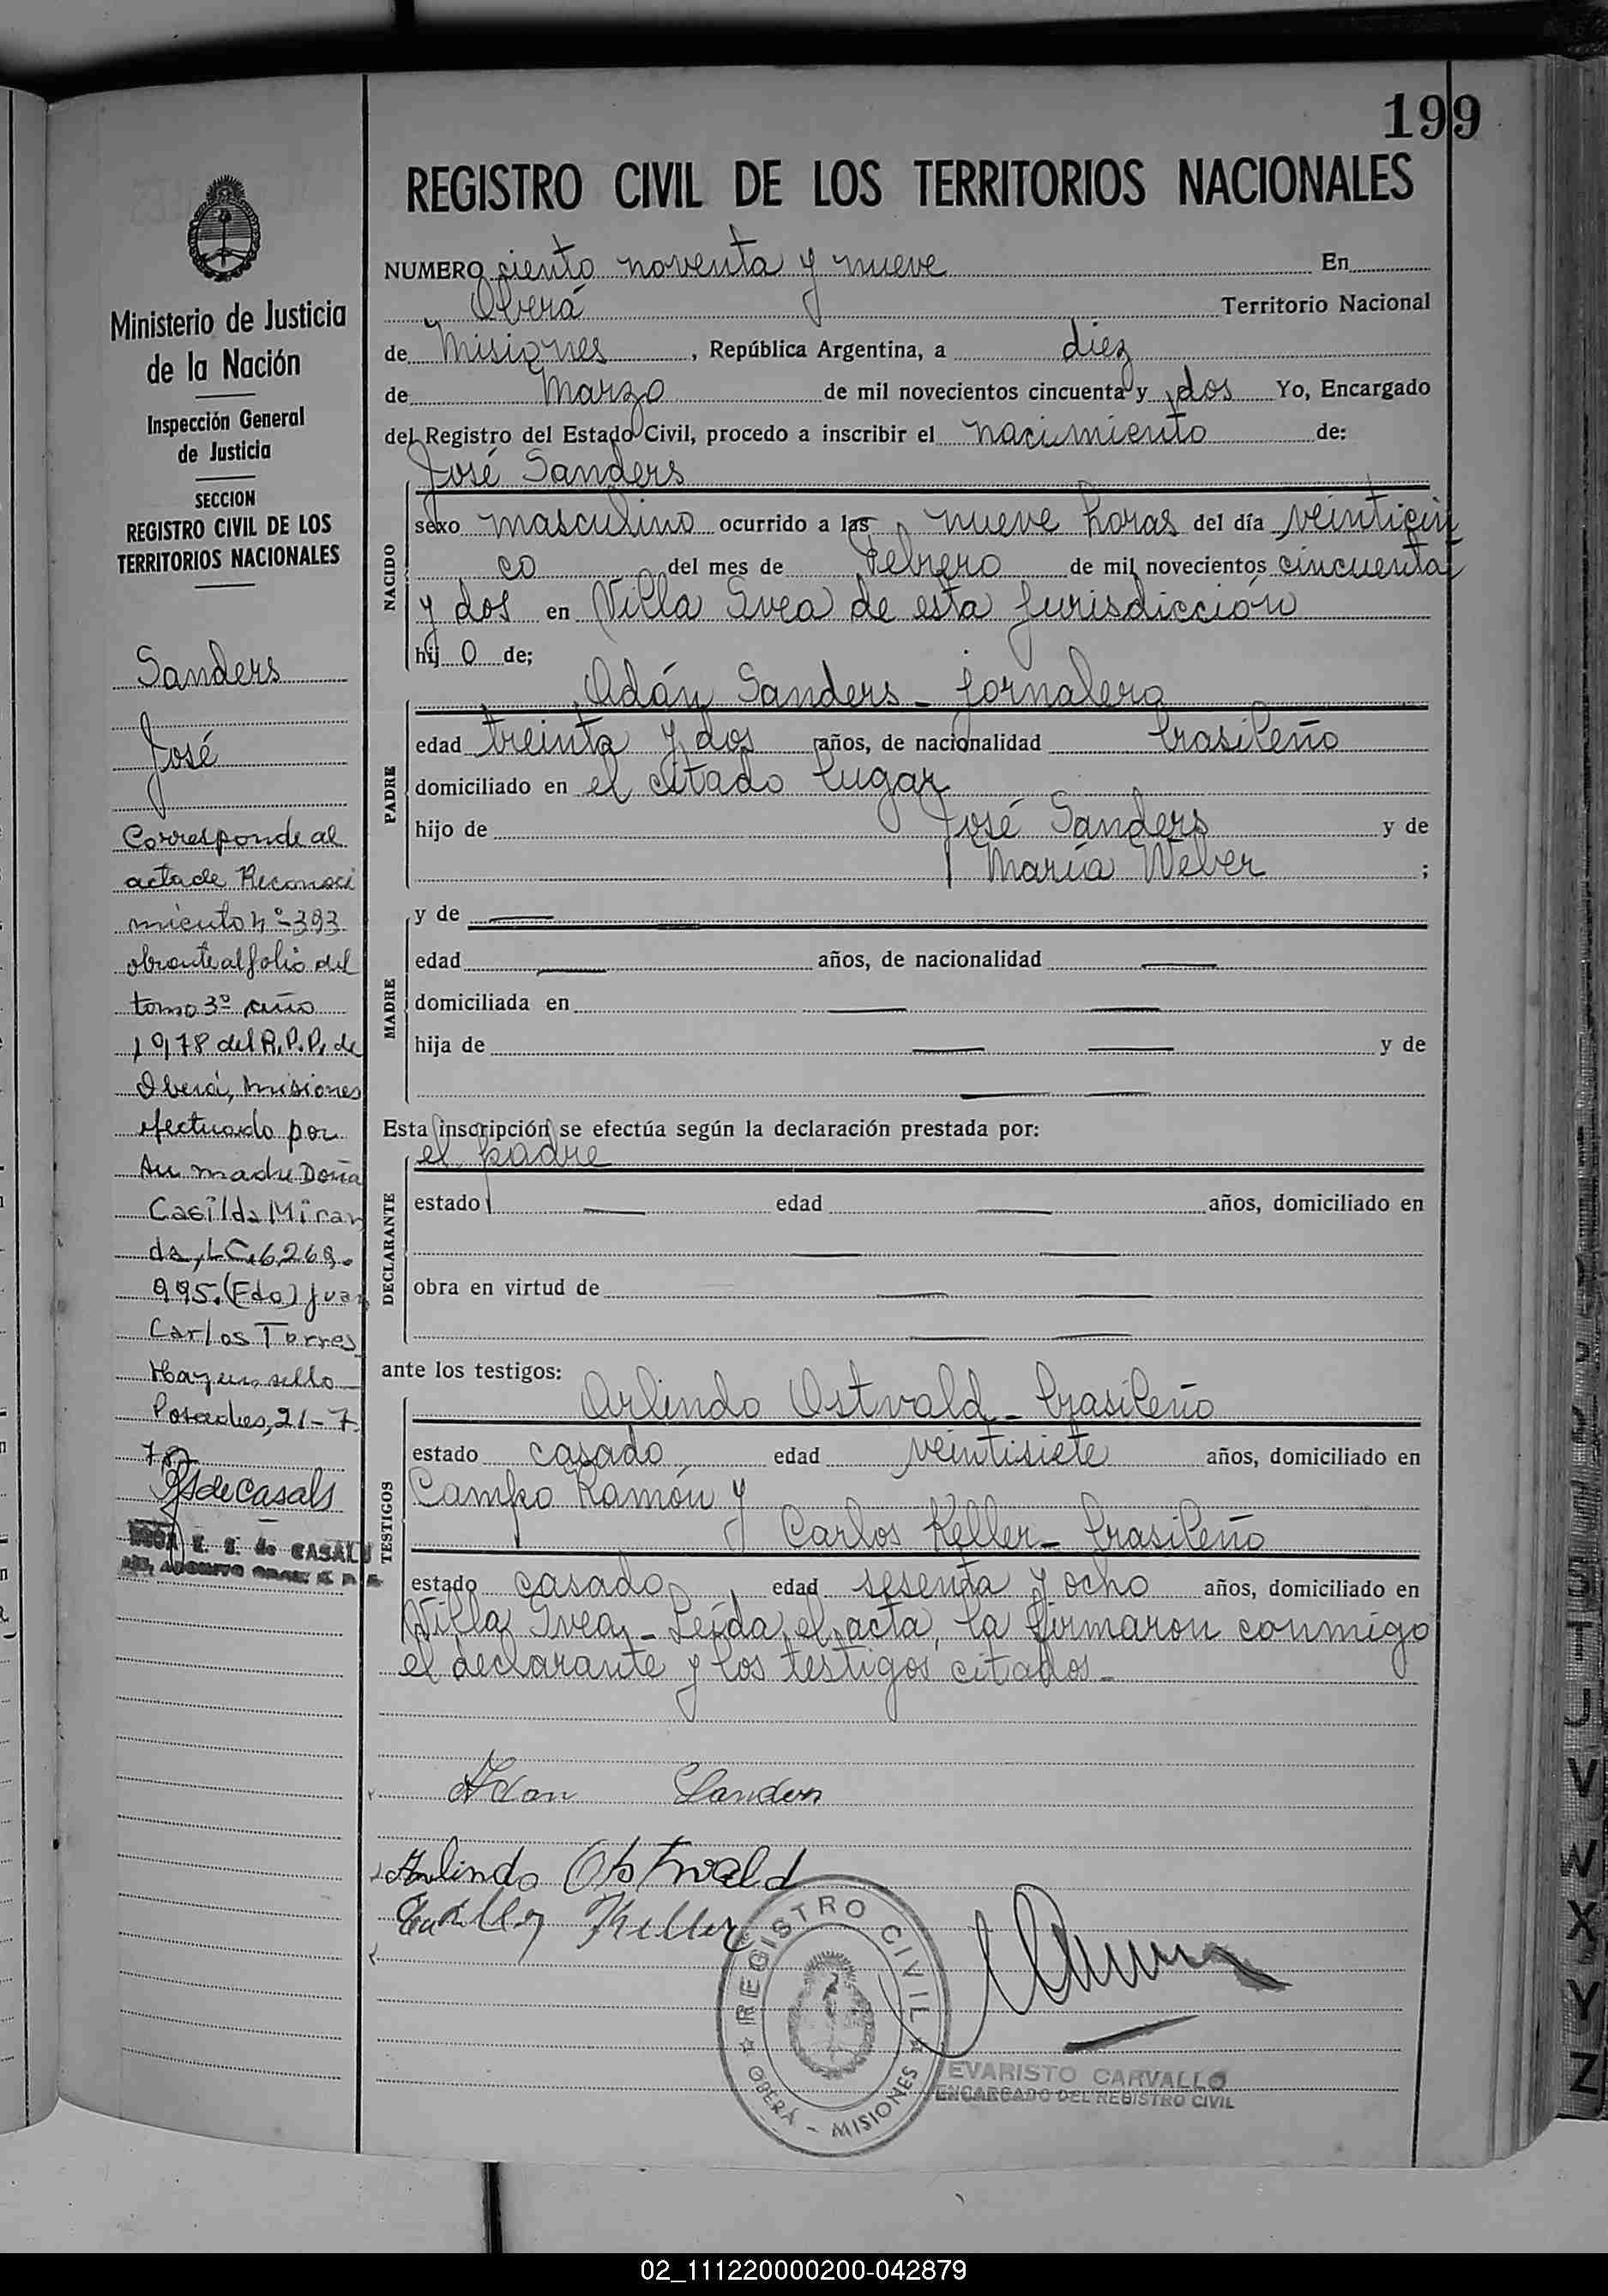 199
REGISTRO CIVIL DE LOS TERRITORIOS NACIONALES
NUMERO siento noventa y nueve En
Oberá Territorio Nacional
de Misiones, República Argentina, a diez
de Marzo de mil novecientos cincuenta y dos Yo, Encargado
del Registro del Estado Civil, procedo a inscribir el nacimiento de:
José Sanders
NACIDO
sexo masculino ocurrido a las nueve horas del día veinticin
co del mes de febrero de mil novecientos cincuenta
y dos en Villa Svea de esta jurisdicción
hij o de;
Adán Sanders - jornalero
PADRE
edad treinta y dos años, de nacionalidad brasileño
domiciliado en el citado lugar
hijo de José Sanders y de
María Weber ;
MADRE
y de
edad años, de nacionalidad
domiciliada en
hija de y de
Esta inscripción se efectúa según la declaración prestada por:
el padre
DECLARANTE
estado edad años, domiciliado en
obra en virtud de
ante los testigos:
Arlindo Ostwald - brasileño
TESTIGOS
estado casado edad veintisiete años, domiciliado en
Campo Ramón y
Carlos Keller - brasileño
estado casado, edad sesenta y ocho años, domiciliado en
Villa Svea, - Leída el acta, la firmaron conmigo
el declarante y los testigos citados -
Adan Sanders
Arlindo Ostwald
Keller
REGISTRO CIVIL
OBERÁ - MISIONES
EVARISTO CARVALLO
ENCARGADO DEL REGISTRO CIVIL
Ministerio de Justicia
de la Nación
Inspección General
de Justicia
SECCION
REGISTRO CIVIL DE LOS
TERRITORIOS NACIONALES
Sanders
José
Corresponde al
acta de Reconoci
miento nº 393
obrante al folio del
tomo 3º año
1978 del R.P.P. de
Oberá, Misiones
efectuado por
su madre Doña
Casilda Miran
da, L.C. 6.269.
995. (Fdo) Juan
Carlos Torres
Hay un sello
Posadas, 21-7-
78
de Casals
E. S. de CASALS
T
U
V
W
X
Y
Z
02_111220000200-042879